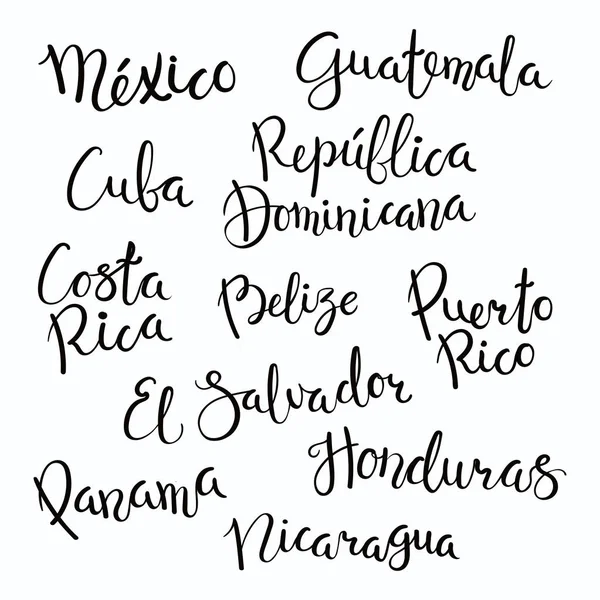 México
Guatemala
Cuba
República
Dominicana
Costa
Rica
Belize
Puerto
Rico
El Salvador
Honduras
Panama
Nicaragua